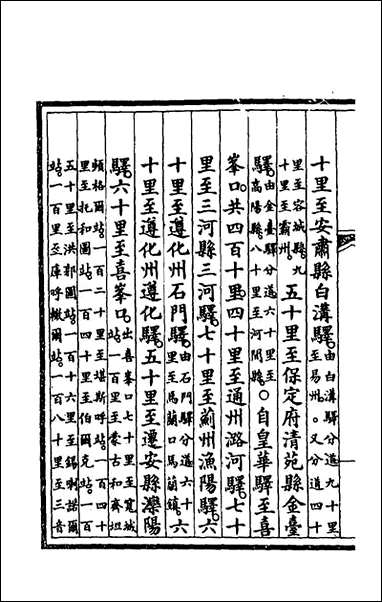 十里至安肅縣白溝驛由白溝驛分道九十里
至易州。又分道四十
里至容城縣九
十里至霸州。五十里至保定府清苑縣金臺
驛由金臺驛分道六十里至
高陽縣八十里至河間縣。○自皇華驛至喜
峯口共四百十里四十里至通州潞河驛七十
里至三河縣三河驛七十里至薊州漁陽驛六
十里至遵化州石門驛由石門驛分道六十
里至馬蘭口馬蘭鎮六
十里至遵化州遵化驛五十里至遷安縣灤陽
驛六十里至喜峯口出喜峯口七十里至寬城
站。一百里至蒙古和齊坦
頻格爾站。一百二十里至堪斯呼站。一百四十
里至托和圖站。一百四十里至伯爾克站。一百
五十里至洪郭圖站。一百十六里至錫喇諾爾
站。一百里至庫呼轍爾站。一百八十里至三音